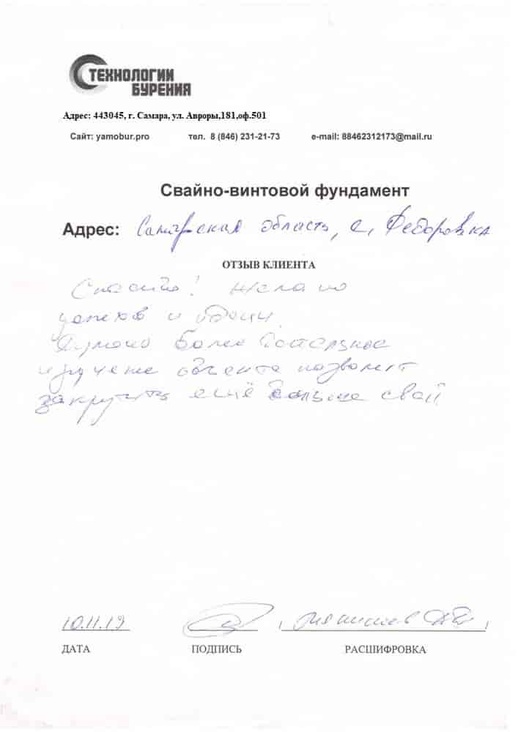 ТЕХНОЛОГИИ
БУРЕНИЯ
Адрес: 443045, г. Самара, ул. Авроры,181,оф.501
Сайт: yamobur.pro тел. 8 (846) 231-21-73 e-mail: 88462312173@mail.ru
Свайно-винтовой фундамент
Адрес: Самарская область, с. Федоровка
ОТЗЫВ КЛИЕНТА
Спасибо! Желаю
успехов и удачи.
Думаю более детальное
изучение объекта позволит
закрутить ещё больше свай
10.11.19
ДАТА ПОДПИСЬ РАСШИФРОВКА